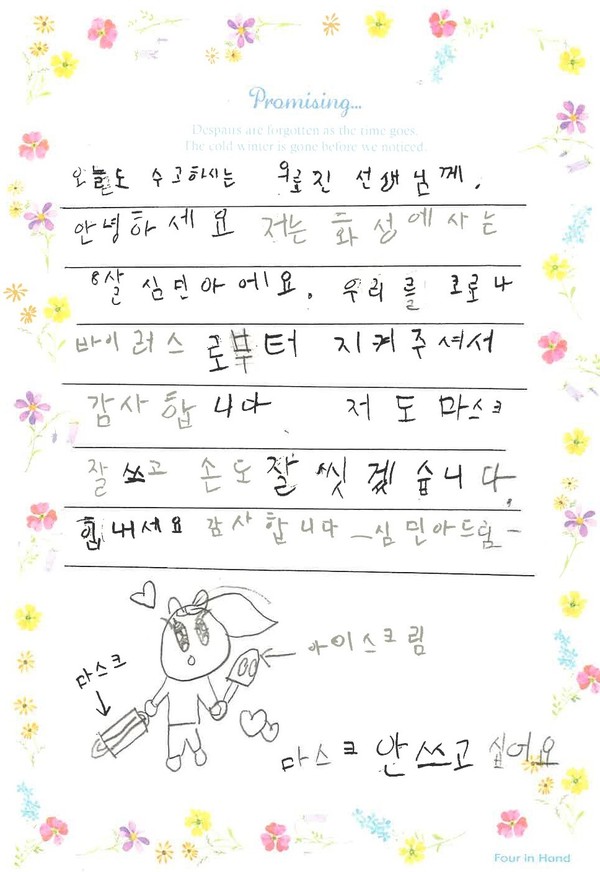 Promising...
Despairs are forgotten as the time goes.
The cold winter is gone before we noticed.
오늘도 수고하시는 의료진 선생님께.
안녕하세요 저는 화성에 사는
8살 심민아에요. 우리를 코로나
바이러스로부터 지켜주셔서
감사합니다 저도 마스크
잘 쓰고 손도 잘 씻겠습니다.
힘내세요 감사합니다 -심민아드림-
아이스크림
마스크
마스크 안쓰고 싶어요
Four in Hand